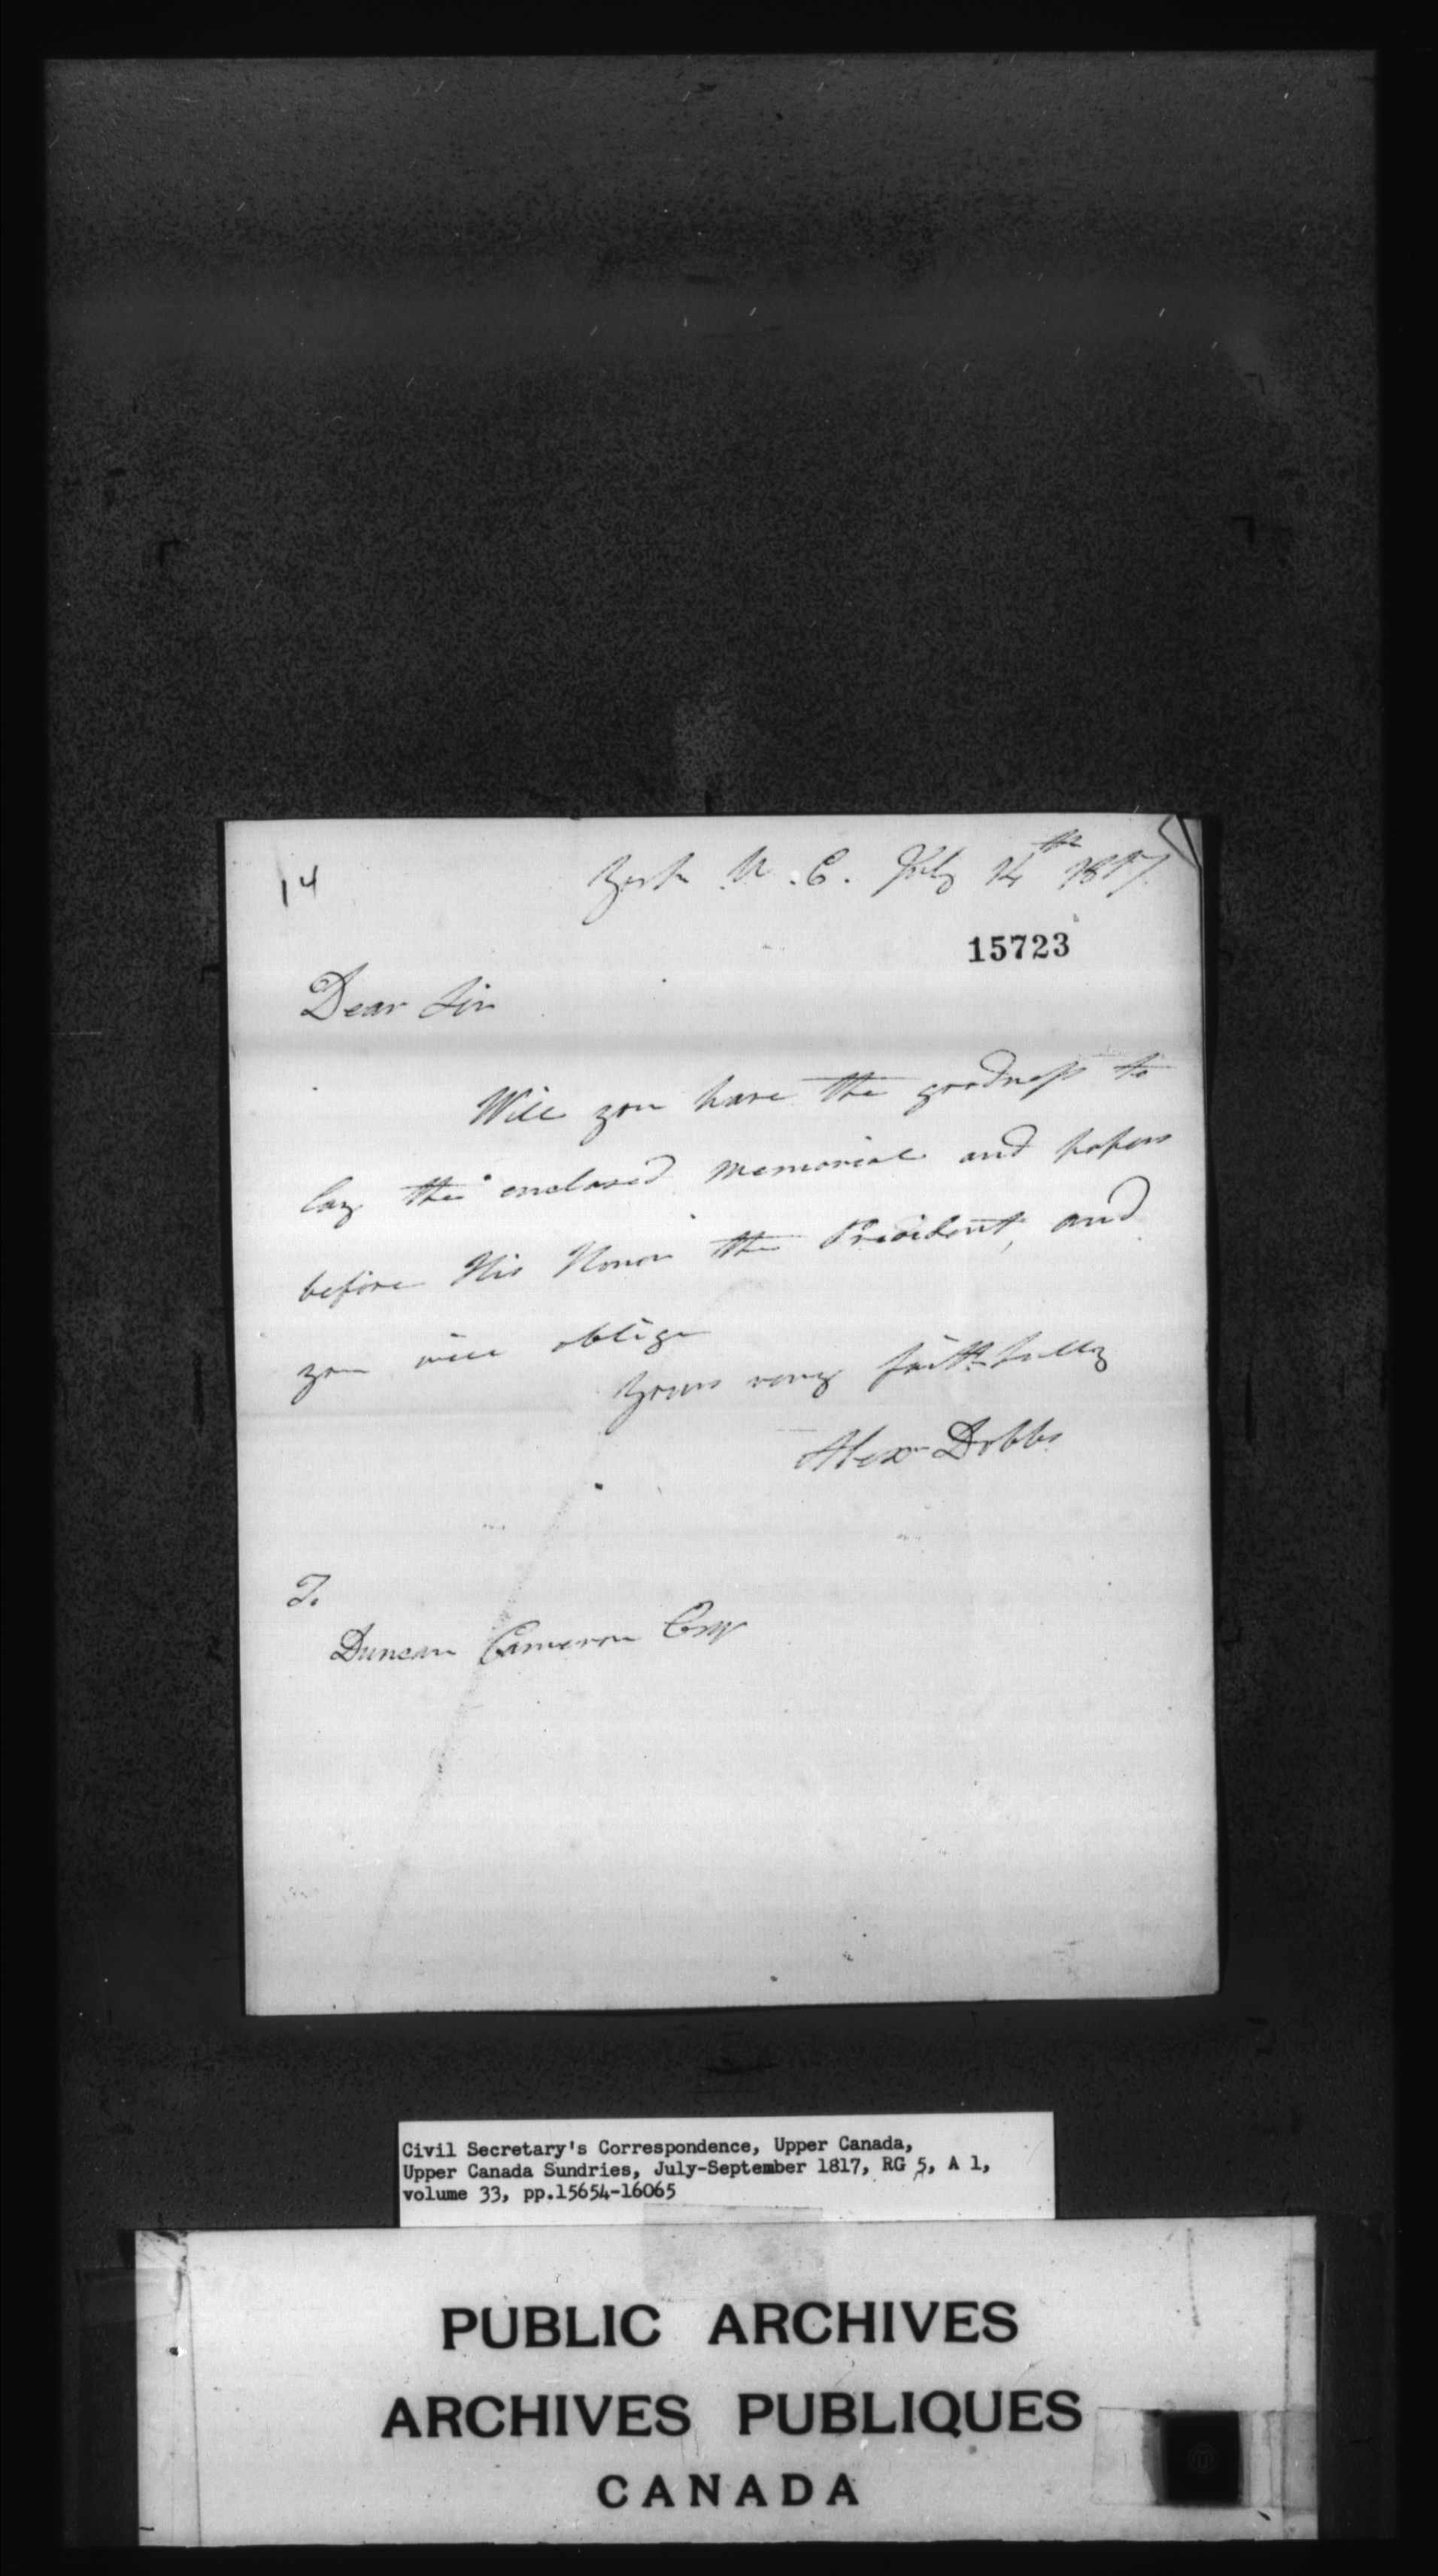 14
York U.C. July 14th 1817
15723
Dear Sir
Will you have the goodness to
lay the enclosed memorial and papers
before His Honor the President, and
you will oblige
Yours very faithfully
Alexr Dobbs
To
Duncan Cameron Esqr
Civil Secretary's Correspondence, Upper Canada,
Upper Canada Sundries, July-September 1817, RG 5, A 1,
volume 33, pp.15654-16065
PUBLIC ARCHIVES
ARCHIVES PUBLIQUES
CANADA